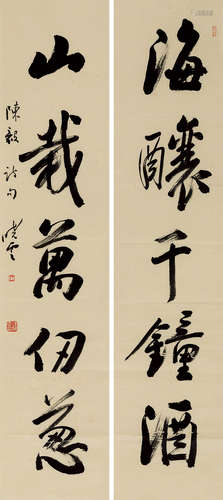 海釀千鐘酒
山栽萬仞葱
陳毅詩句
曉雲